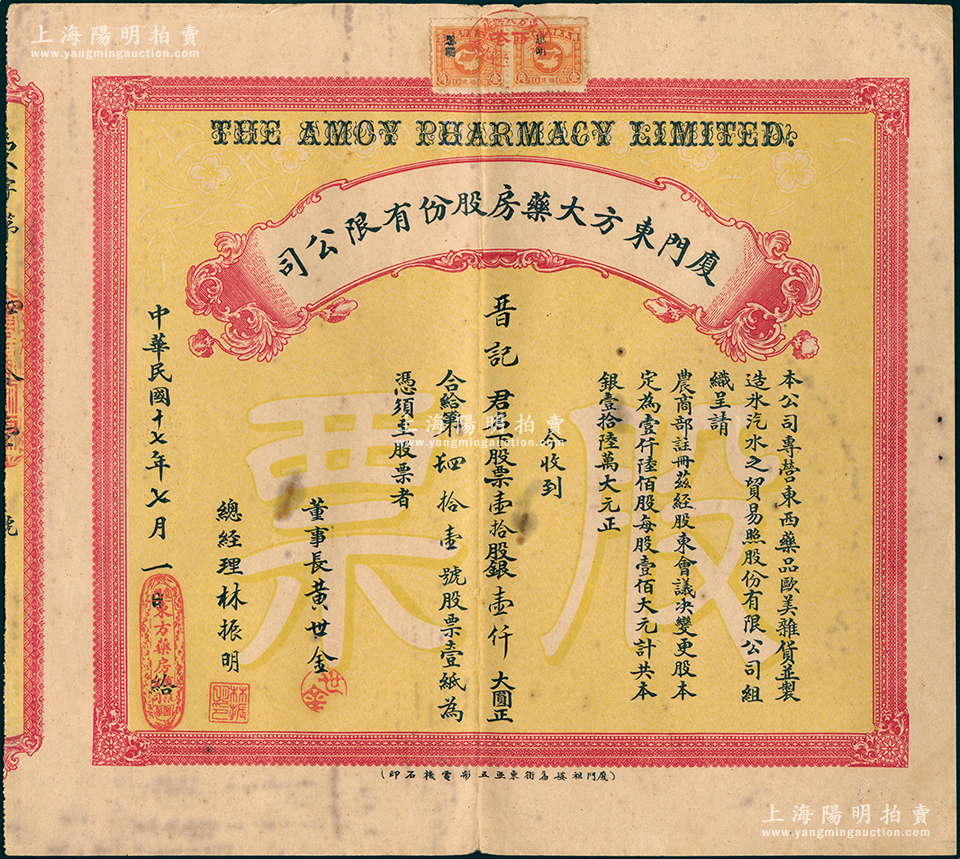 上海陽明拍賣
www.yangmingauction.com
THE AMOY PHARMACY LIMITED.
廈門東方大藥房股份有限公司
本公司專營東西藥品歐美雜貨並製
造氷汽水之貿易照股份有限公司組
織呈請
農商部註冊茲經股東會議決變更股本
定為壹仟陸佰股每股壹佰大元計共本
銀壹拾陸萬大元正
今收到
晉記 君名下股票壹拾股銀壹仟大圓正
合給第四拾壹號股票壹紙為
憑須至股票者
董事長黃世金
總經理林振明
中華民國十七年七月一日給
東方藥房
世金
上海陽明拍賣
www.yangmingauction.com
(廈門祖婆廟街東亞五彩電機石印)
上海陽明拍賣
www.yangmingauction.com